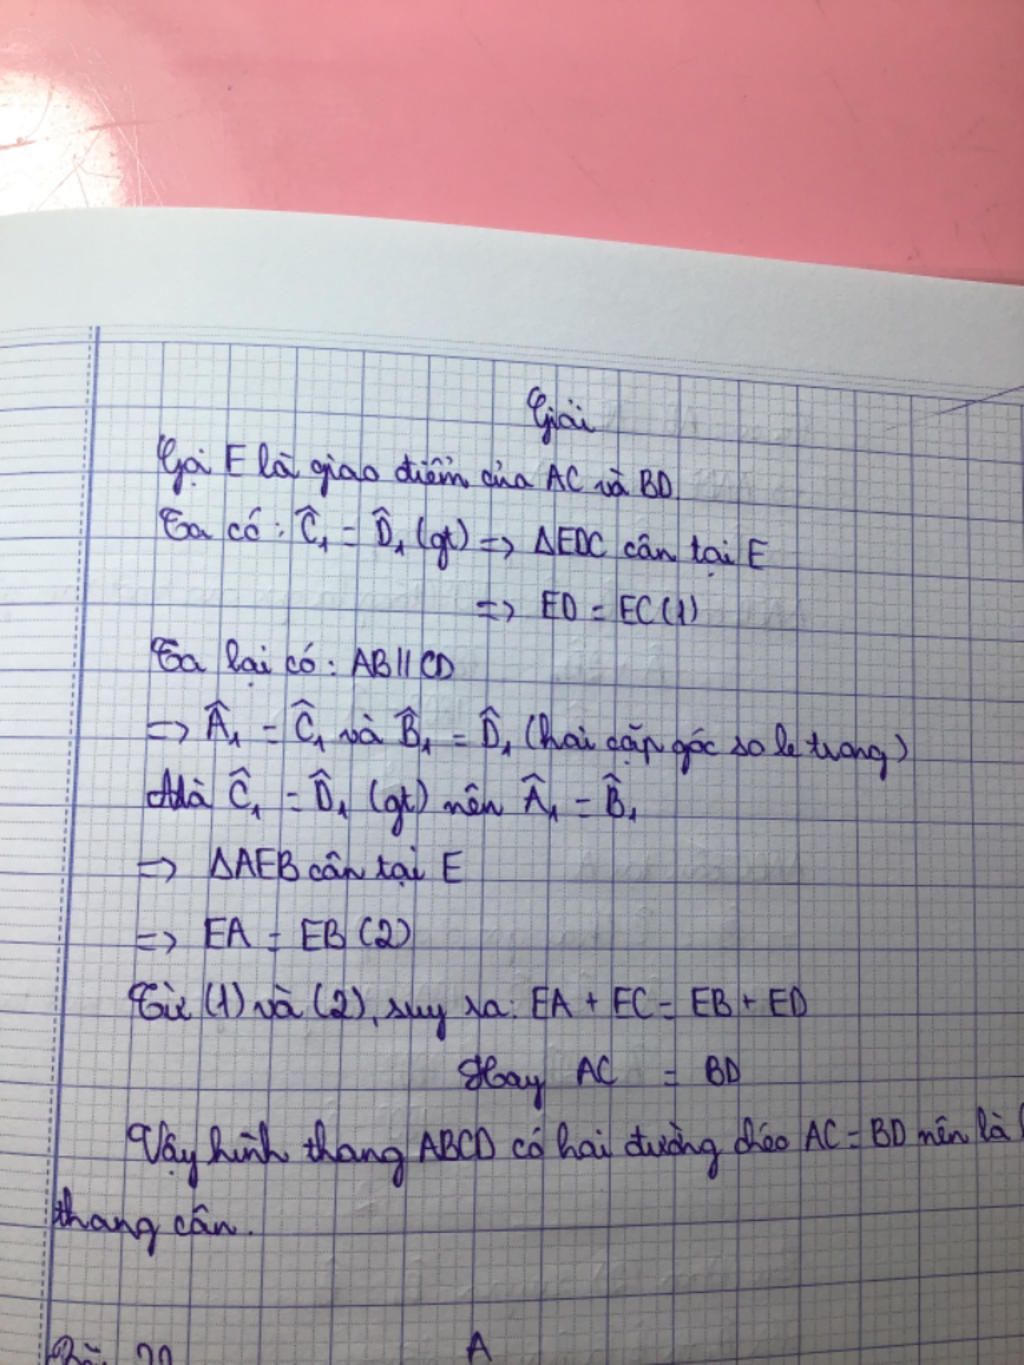 Giải
Gọi E là giao điểm của AC và BD
Ta có: Ĉ₁ = D̂₁ (gt) => ΔEDC cân tại E
=> ED = EC (1)
Ta lại có: AB // CD
=> Â₁ = Ĉ₁ và B̂₁ = D̂₁ (hai cặp góc so le trong)
Mà Ĉ₁ = D̂₁ (gt) nên Â₁ = B̂₁
=> ΔAEB cân tại E
=> EA = EB (2)
Từ (1) và (2), suy ra: EA + EC = EB + ED
Hay AC = BD
Vậy hình thang ABCD có hai đường chéo AC = BD nên là
thang cân.
A